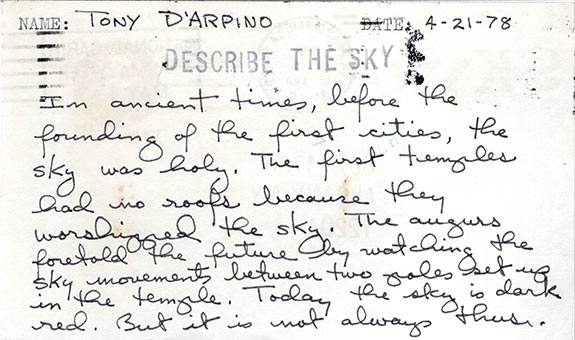 NAME: TONY D'ARPINO DATE: 4-21-78
DESCRIBE THE SKY
In ancient times, before the
founding of the first cities, the
sky was holy. The first temples
had no roofs because they
worshipped the sky. The augurs
foretold the future by watching the
sky movements between two poles set up
in the temple. Today the sky is dark
red. But it is not always thus.